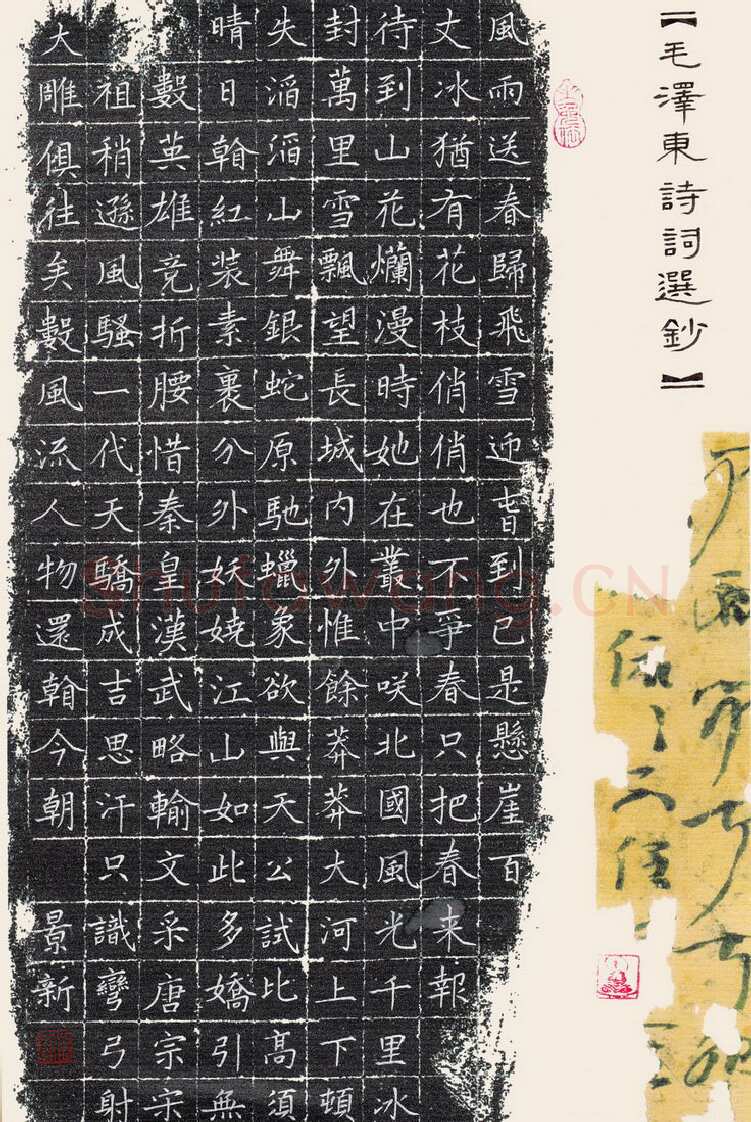 【毛澤東詩詞選鈔】
風雨送春歸飛雪迎旾到已是懸崖百
丈冰猶有花枝俏俏也不爭春只把春来報
待到山花爛漫時她在叢中咲北國風光千里冰
封萬里雪飄望長城内外惟餘莽莽大河上下頓
失滔滔山舞銀蛇原馳蠟象欲與天公試比高須
晴日翰紅裝素裹分外妖嬈江山如此多嬌引無
數英雄竞折腰惜秦皇漢武略輸文采唐宗宋
祖稍遜風騷一代天驕成吉思汗只識彎弓射
大雕俱往矣數風流人物還翰今朝
景新
shufawang.CN